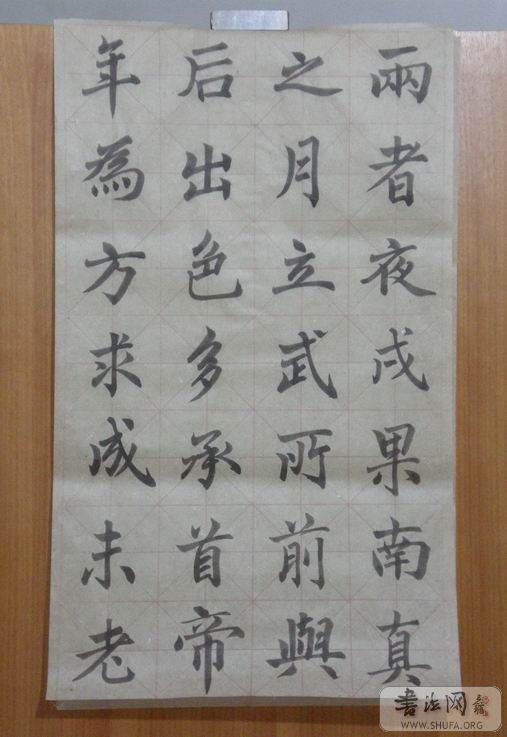 兩者夜戌果南真
之月立武所前與
后出色多承首帝
年為方求成未老
书法网
WWW.SHUFA.ORG